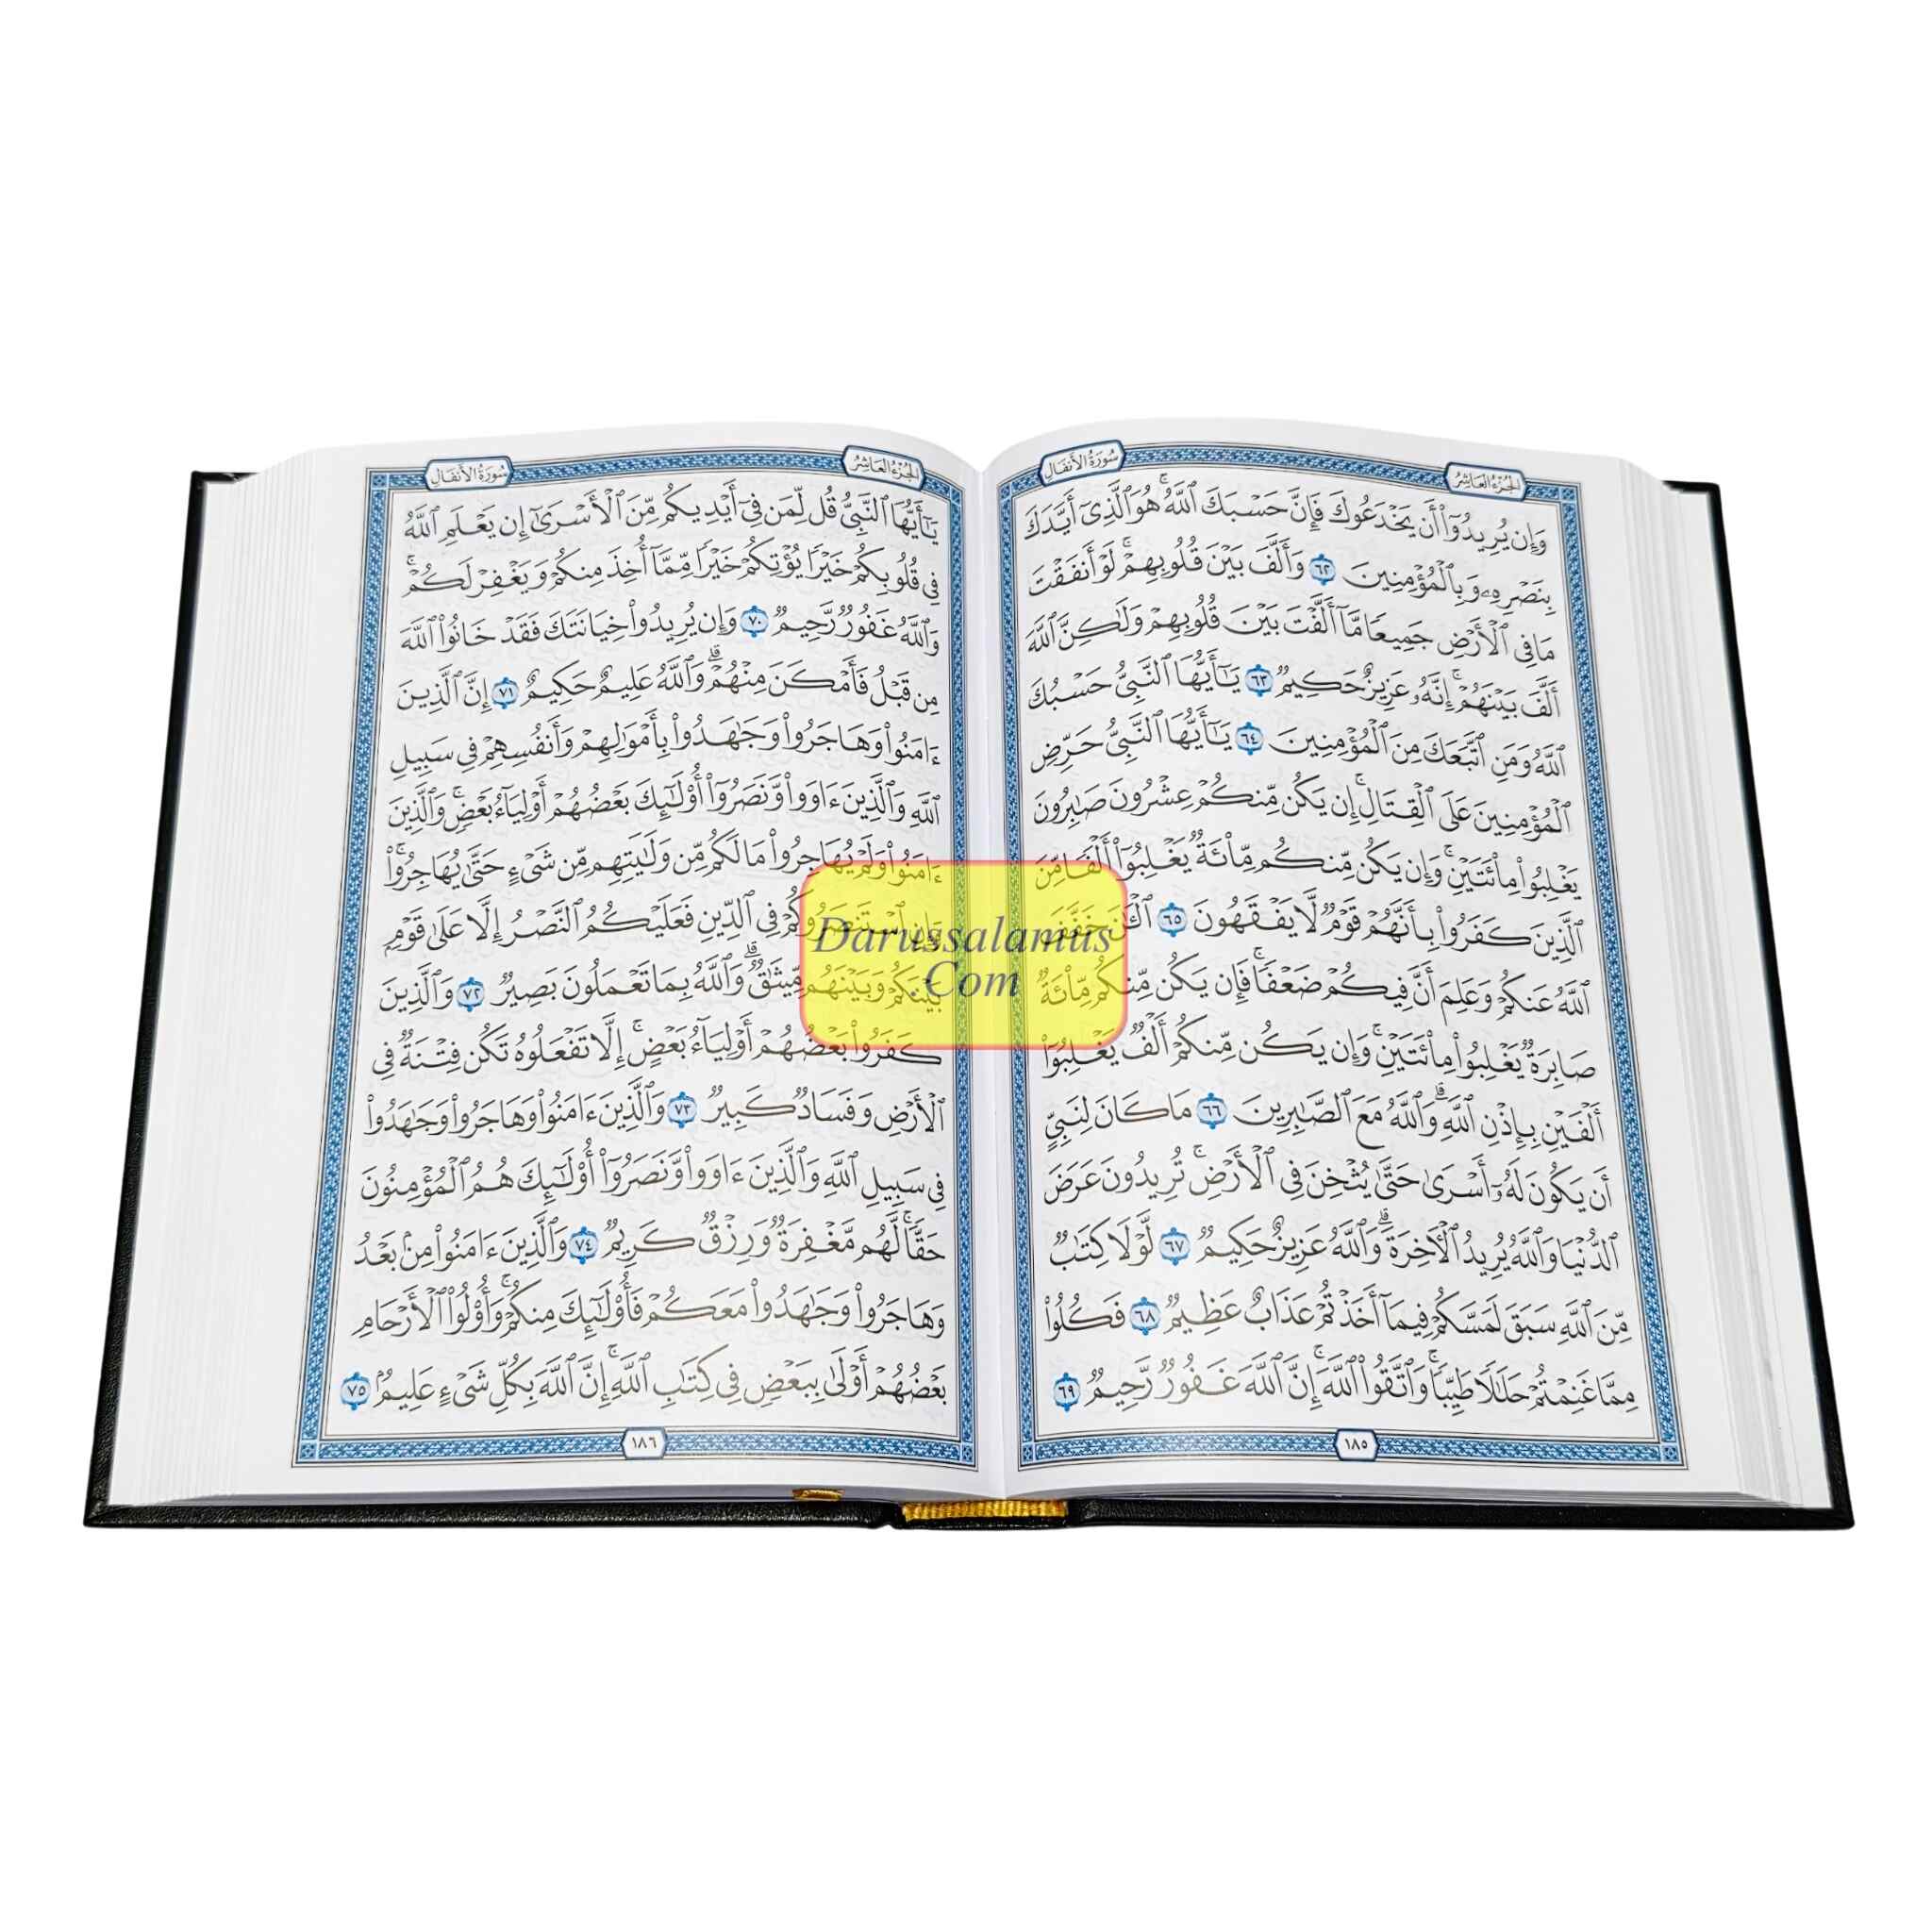 الجزء العاشر
سورة الأنفال
وَإِن يُرِيدُوٓا۟ أَن يَخْدَعُوكَ فَإِنَّ حَسْبَكَ ٱللَّهُ ۚ هُوَ ٱلَّذِىٓ أَيَّدَكَ
بِنَصْرِهِۦ وَبِٱلْمُؤْمِنِينَ ٦٢ وَأَلَّفَ بَيْنَ قُلُوبِهِمْ ۚ لَوْ أَنفَقْتَ
مَا فِى ٱلْأَرْضِ جَمِيعًا مَّآ أَلَّفْتَ بَيْنَ قُلُوبِهِمْ وَلَٰكِنَّ ٱللَّهَ
أَلَّفَ بَيْنَهُمْ ۚ إِنَّهُۥ عَزِيزٌ حَكِيمٌ ٦٣ يَٰٓأَيُّهَا ٱلنَّبِىُّ حَسْبُكَ
ٱللَّهُ وَمَنِ ٱتَّبَعَكَ مِنَ ٱلْمُؤْمِنِينَ ٦٤ يَٰٓأَيُّهَا ٱلنَّبِىُّ حَرِّضِ
ٱلْمُؤْمِنِينَ عَلَى ٱلْقِتَالِ ۚ إِن يَكُن مِّنكُمْ عِشْرُونَ صَٰبِرُونَ
يَغْلِبُوا۟ مِا۟ئَتَيْنِ ۚ وَإِن يَكُن مِّنكُم مِّا۟ئَةٌ يَغْلِبُوٓا۟ أَلْفًا مِّنَ
ٱلَّذِينَ كَفَرُوا۟ بِأَنَّهُمْ قَوْمٌ لَّا يَفْقَهُونَ ٦٥ ٱلْـَٰٔنَ خَفَّفَ
ٱللَّهُ عَنكُمْ وَعَلِمَ أَنَّ فِيكُمْ ضَعْفًا ۚ فَإِن يَكُن مِّنكُم مِّا۟ئَةٌ
صَابِرَةٌ يَغْلِبُوا۟ مِا۟ئَتَيْنِ ۚ وَإِن يَكُن مِّنكُمْ أَلْفٌ يَغْلِبُوٓا۟
أَلْفَيْنِ بِإِذْنِ ٱللَّهِ ۗ وَٱللَّهُ مَعَ ٱلصَّٰبِرِينَ ٦٦ مَا كَانَ لِنَبِىٍّ
أَن يَكُونَ لَهُۥٓ أَسْرَىٰ حَتَّىٰ يُثْخِنَ فِى ٱلْأَرْضِ ۚ تُرِيدُونَ عَرَضَ
ٱلدُّنْيَا وَٱللَّهُ يُرِيدُ ٱلْـَٔاخِرَةَ ۗ وَٱللَّهُ عَزِيزٌ حَكِيمٌ ٦٧ لَّوْلَا كِتَٰبٌ
مِّنَ ٱللَّهِ سَبَقَ لَمَسَّكُمْ فِيمَآ أَخَذْتُمْ عَذَابٌ عَظِيمٌ ٦٨ فَكُلُوا۟
مِمَّا غَنِمْتُمْ حَلَٰلًا طَيِّبًا ۚ وَٱتَّقُوا۟ ٱللَّهَ ۚ إِنَّ ٱللَّهَ غَفُورٌ رَّحِيمٌ ٦٩
١٨٥
الجزء العاشر
سورة الأنفال
يَٰٓأَيُّهَا ٱلنَّبِىُّ قُل لِّمَن فِىٓ أَيْدِيكُم مِّنَ ٱلْأَسْرَىٰٓ إِن يَعْلَمِ ٱللَّهُ
فِى قُلُوبِكُمْ خَيْرًا يُؤْتِكُمْ خَيْرًا مِّمَّآ أُخِذَ مِنكُمْ وَيَغْفِرْ لَكُمْ ۗ
وَٱللَّهُ غَفُورٌ رَّحِيمٌ ٧٠ وَإِن يُرِيدُوا۟ خِيَانَتَكَ فَقَدْ خَانُوا۟ ٱللَّهَ
مِن قَبْلُ فَأَمْكَنَ مِنْهُمْ ۗ وَٱللَّهُ عَلِيمٌ حَكِيمٌ ٧١ إِنَّ ٱلَّذِينَ
ءَامَنُوا۟ وَهَاجَرُوا۟ وَجَٰهَدُوا۟ بِأَمْوَٰلِهِمْ وَأَنفُسِهِمْ فِى سَبِيلِ
ٱللَّهِ وَٱلَّذِينَ ءَاوَوا۟ وَّنَصَرُوٓا۟ أُو۟لَٰٓئِكَ بَعْضُهُمْ أَوْلِيَآءُ بَعْضٍ ۚ وَٱلَّذِينَ
ءَامَنُوا۟ وَلَمْ يُهَاجِرُوا۟ مَا لَكُم مِّن وَلَٰيَتِهِم مِّن شَىْءٍ حَتَّىٰ يُهَاجِرُوا۟ ۚ
وَإِنِ ٱسْتَنصَرُوكُمْ فِى ٱلدِّينِ فَعَلَيْكُمُ ٱلنَّصْرُ إِلَّا عَلَىٰ قَوْمٍۭ
بَيْنَكُمْ وَبَيْنَهُم مِّيثَٰقٌ ۗ وَٱللَّهُ بِمَا تَعْمَلُونَ بَصِيرٌ ٧٢ وَٱلَّذِينَ
كَفَرُوا۟ بَعْضُهُمْ أَوْلِيَآءُ بَعْضٍ ۚ إِلَّا تَفْعَلُوهُ تَكُن فِتْنَةٌ فِى
ٱلْأَرْضِ وَفَسَادٌ كَبِيرٌ ٧٣ وَٱلَّذِينَ ءَامَنُوا۟ وَهَاجَرُوا۟ وَجَٰهَدُوا۟
فِى سَبِيلِ ٱللَّهِ وَٱلَّذِينَ ءَاوَوا۟ وَّنَصَرُوٓا۟ أُو۟لَٰٓئِكَ هُمُ ٱلْمُؤْمِنُونَ
حَقًّا ۚ لَّهُم مَّغْفِرَةٌ وَرِزْقٌ كَرِيمٌ ٧٤ وَٱلَّذِينَ ءَامَنُوا۟ مِنۢ بَعْدُ
وَهَاجَرُوا۟ وَجَٰهَدُوا۟ مَعَكُمْ فَأُو۟لَٰٓئِكَ مِنكُمْ ۚ وَأُو۟لُوا۟ ٱلْأَرْحَامِ
بَعْضُهُمْ أَوْلَىٰ بِبَعْضٍ فِى كِتَٰبِ ٱللَّهِ ۗ إِنَّ ٱللَّهَ بِكُلِّ شَىْءٍ عَلِيمٌۢ ٧٥
١٨٦
Darussalamus
.Com